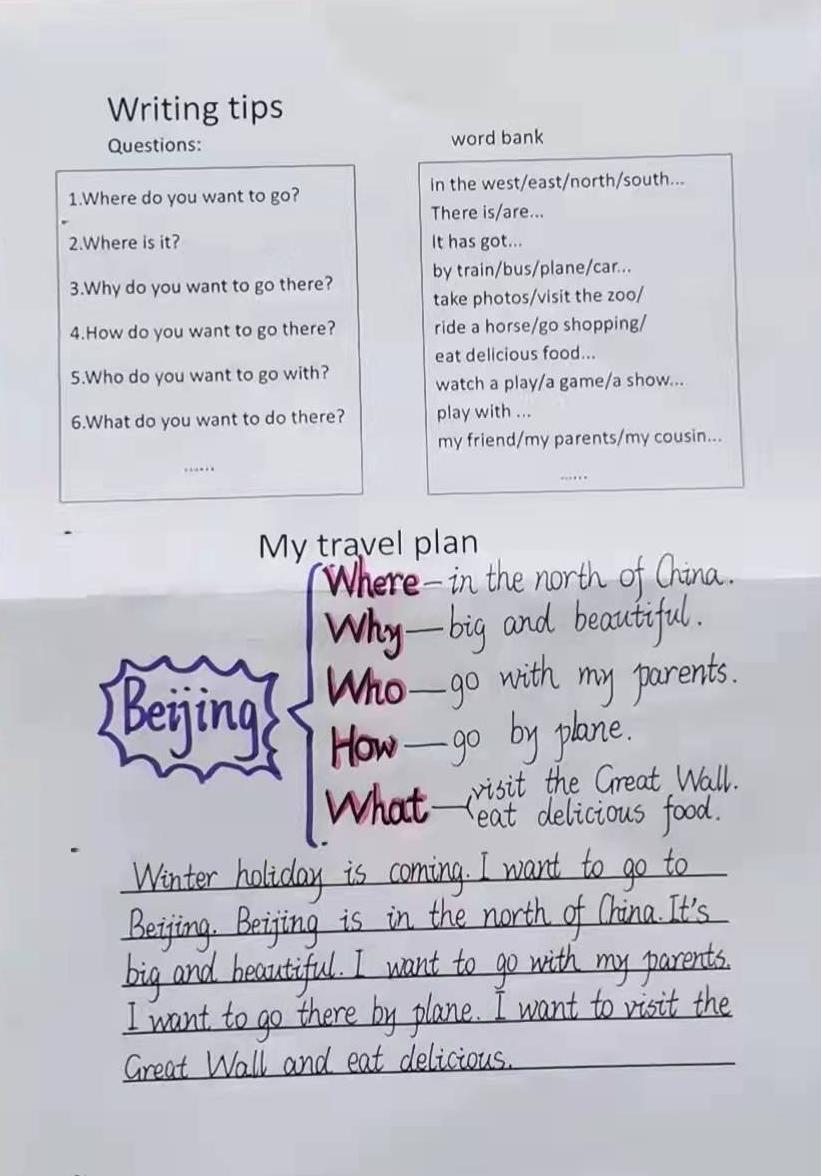 Writing tips
Questions:
1.Where do you want to go?
2.Where is it?
3.Why do you want to go there?
4.How do you want to go there?
5.Who do you want to go with?
6.What do you want to do there?
......
word bank
in the west/east/north/south...
There is/are...
It has got...
by train/bus/plane/car...
take photos/visit the zoo/
ride a horse/go shopping/
eat delicious food...
watch a play/a game/a show...
play with ...
my friend/my parents/my cousin...
......
My travel plan
Beijing
Where-in the north of China.
Why—big and beautiful.
Who—go with my parents.
How—go by plane.
What—visit the Great Wall.
eat delicious food.
Winter holiday is coming. I want to go to
Beijing. Beijing is in the north of China. It's
big and beautiful. I want to go with my parents.
I want to go there by plane. I want to visit the
Great Wall and eat delicious.